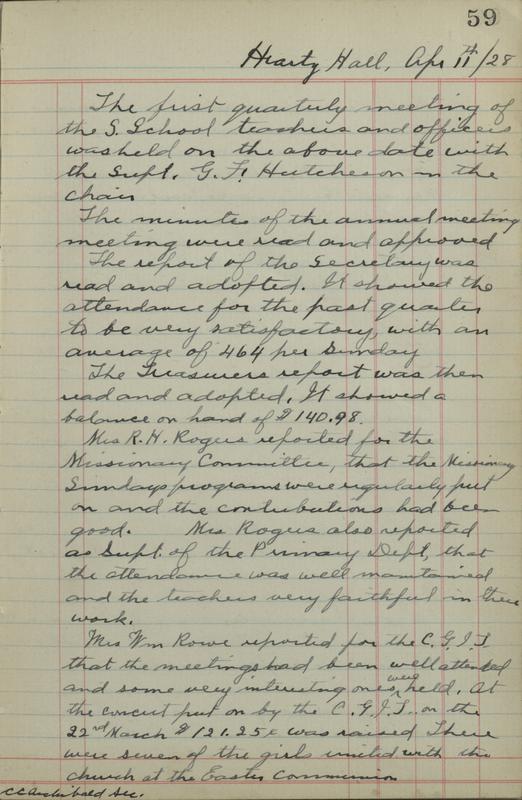 59
Hearty Hall, Apr 11th/28
The first quarterly meeting of
the S. School teachers and officers
was held on the above date with
the Supt. G. F. Hutcheson in the
chair
The minutes of the annual meeting
meeting were read and approved
The report of the Secretary was
read and adopted. It showed the
attendance for the past quarter
to be very satisfactory, with an
average of 464 per Sunday
The Treasurers report was then
read and adopted. It showed a
balance on hand of $140.98.
Mrs R. H. Rogers reported for the
Missionary Committee, that the Missionary
Sundays programs were regularly put
on and the contributions had been
good. Mrs Rogers also reported
as Supt. of the Primary Dept, that
the attendance was well maintained
and the teachers very faithful in their
work.
Mrs Wm Rowe reported for the C. G. I. T.
that the meetings had been well attended
and some very interesting ones were held. At
the concert put on by the C. G. I. T. on the
22nd March $121.25c was raised There
were seven of the girls united with the
church at the Easter Communion
CC Archibald Sec.